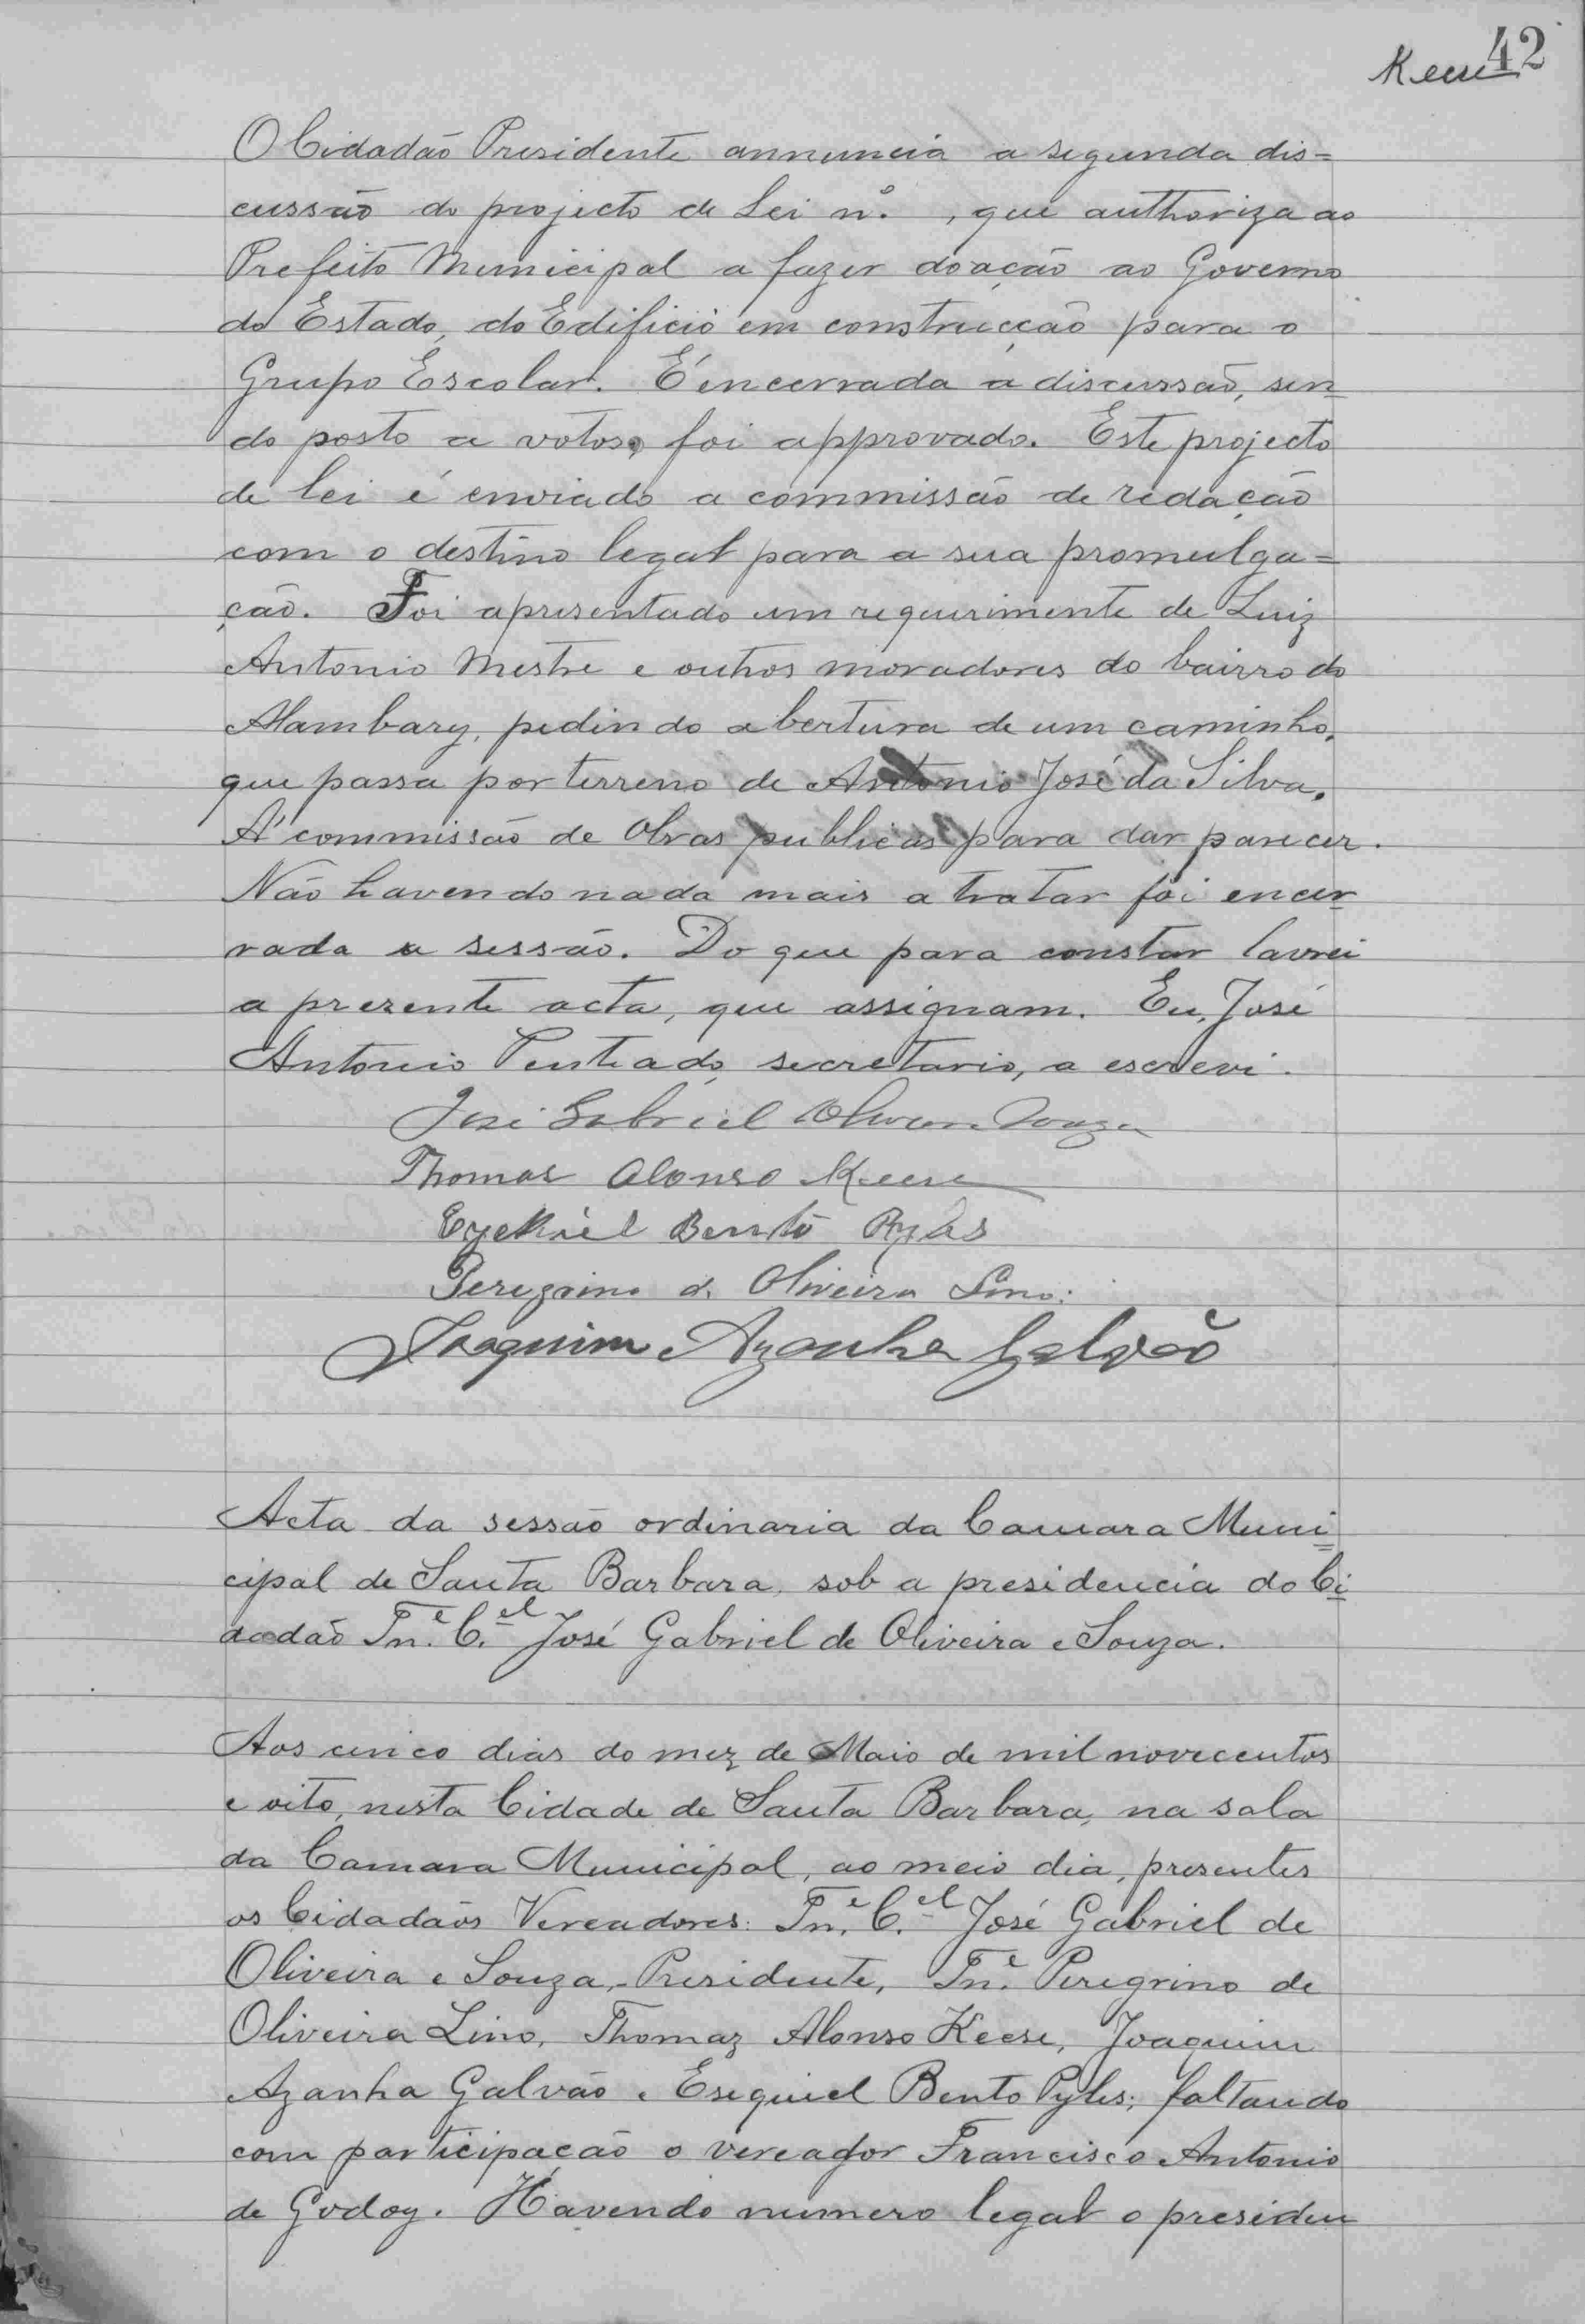 Keese 42
O Cidadão Presidente annuncia a segunda dis=
cussão do projecto de Lei nº. , que authoriza ao
Prefeito Municipal a fazer doação ao Governo
do Estado, do Edificio em construcção para o
Grupo Escolar. É encerrada a discussão, sen
do posto a votos, foi approvado. Este projecto
de lei é enviado a commissão de redação
com o destino legal para a sua promulga=
ção. Foi apresentado um requerimento de Luiz
Antonio Mestre e outros moradores do bairro do
Alambary, pedindo abertura de um caminho,
que passa por terreno de Antonio José da Silva.
A' commissão de Obras publicas para dar parecer.
Não havendo nada mais a tratar foi encer
rada a sessão. Do que para constar lavrei
a prezente acta, que assignam. Eu, José
Antonio Penteado, secretario, a escrevi.
José Gabriel Oliveira Souza
Thomas Alonso Keese
Ezekiel Bento Pyles
Peregrino de Oliveira Lino.
Joaquim Azanha Galvão
Acta da sessão ordinaria da Camara Muni
cipal de Santa Barbara, sob a presidencia do Ci
dadão Tne. Cel. José Gabriel de Oliveira e Souza.
Aos cinco dias do mez de Maio de mil novecentos
e oito, nesta Cidade de Santa Barbara, na sala
da Camara Municipal, ao meio dia, presentes
os Cidadãos Vereadores: Tne. Cel. José Gabriel de
Oliveira e Souza, Presidente, Tne. Peregrino de
Oliveira Lino, Thomaz Alonso Keese, Joaquim
Azanha Galvão e Esequiel Bento Pyles; faltando
com participacão o vereador Francisco Antonio
de Godoy. Havendo numero legal o presiden